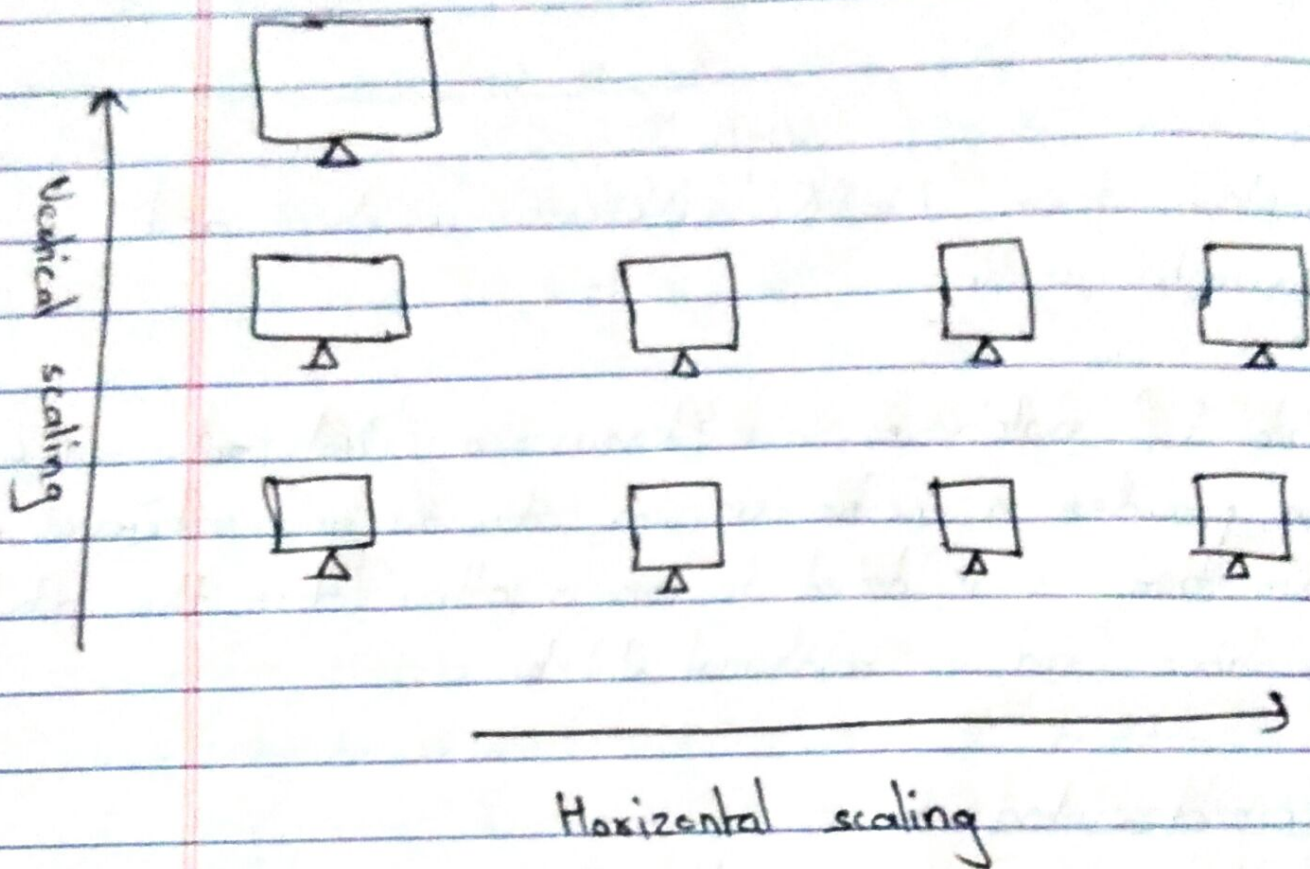 Vertical scaling
Horizental scaling